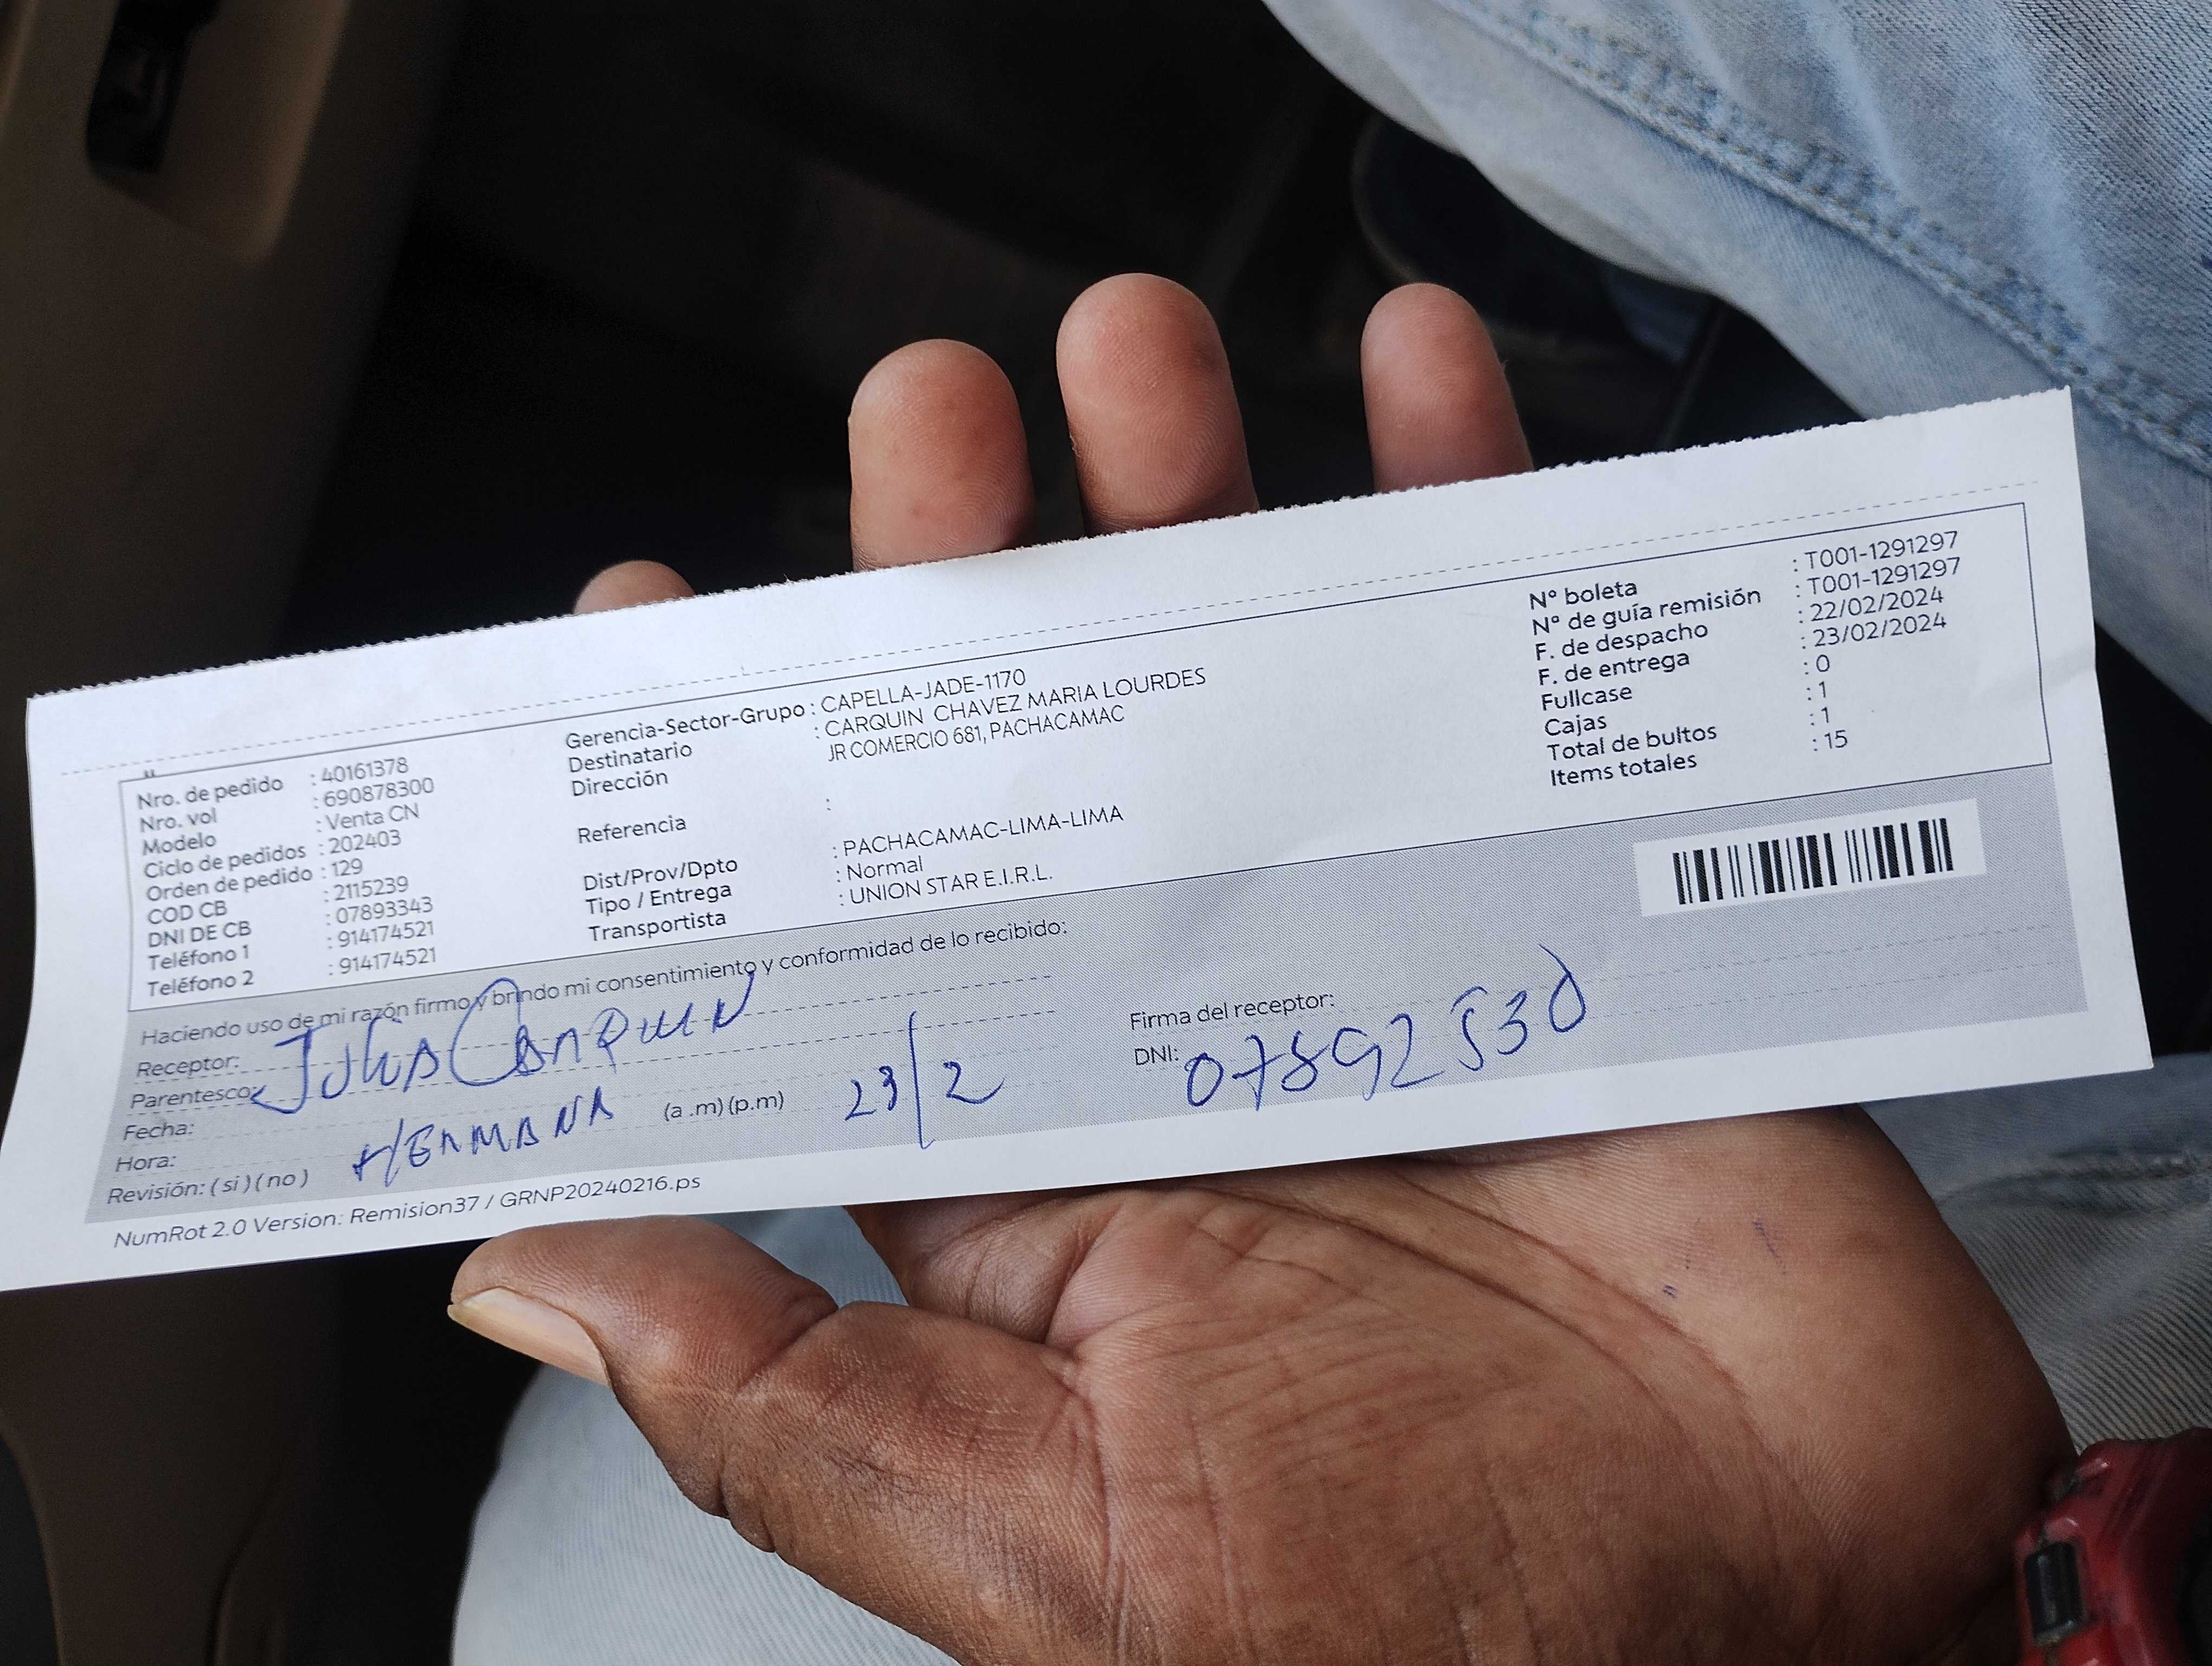 Nro. de pedido : 40161378
Nro. vol : 690878300
Modelo : Venta CN
Ciclo de pedidos : 202403
Orden de pedido : 129
COD CB : 2115239
DNI DE CB : 07893343
Teléfono 1 : 914174521
Teléfono 2 : 914174521
Gerencia-Sector-Grupo : CAPELLA-JADE-1170
Destinatario : CARQUIN CHAVEZ MARIA LOURDES
Dirección JR COMERCIO 681, PACHACAMAC
Referencia :
Dist/Prov/Dpto : PACHACAMAC-LIMA-LIMA
Tipo / Entrega : Normal
Transportista : UNION STAR E.I.R.L.
N° boleta : T001-1291297
N° de guía remisión : T001-1291297
F. de despacho : 22/02/2024
F. de entrega : 23/02/2024
Fullcase : 0
Cajas : 1
Total de bultos : 1
Items totales : 15
Haciendo uso de mi razón firmo y brindo mi consentimiento y conformidad de lo recibido:
Receptor:
Parentesco:
Fecha:
Hora: HERMANA (a .m) (p.m) 23/2
Revisión: ( si ) ( no )
Firma del receptor:
DNI: 07892530
NumRot 2.0 Version: Remision37 / GRNP20240216.ps